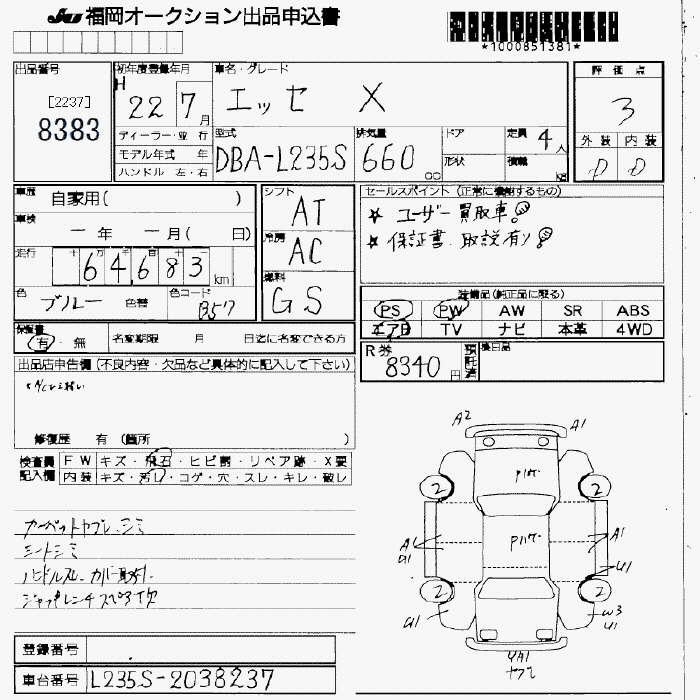 JU 福岡オークション出品申込書
*1000851381*
出品番号 [2237] 8383
初年度登録年月 H 22 7月
ディーラー・並行
モデル年式 年
ハンドル 左・右
車名・グレード エッセ X
型式 DBA-L235S
排気量 660 cc
ドア
形状
定員 4人
積載 kg
評価点 3
外装 内装
D D
車歴 自家用( )
車検 ー年 ー月( 日)
走行 64,683 km
色 ブルー 色替 色コード B57
シフト AT
冷房 AC
燃料 GS
セールスポイント (正常に機能するもの)
☆ ユーザー買取車
☆ 保証書、取説有り
装備品(純正品に限る)
PS PW AW SR ABS
エアB TV ナビ 本革 4WD
保証書 有・無
名変期限 月 日迄に名変できる方
R券 8340円 預託済
後日品
出品店申告欄 (不良内容・欠品など具体的に記入して下さい)
修復歴 有 (箇所 )
検査員 FW キズ・飛石・ヒビ割・リペア跡・X要
記入欄 内装 キズ・汚レ・コゲ・穴・スレ・キレ・破レ
カーペットヤブレ、シミ
シートシミ
A2 A1
2 2
A1 U1 A1
U1
2 2
U1 W3 U1
YA1
登録番号
車台番号 L235S-2038237